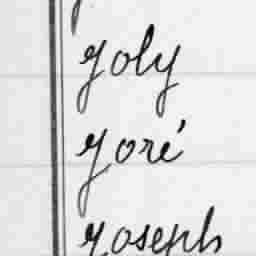 Joly
Joré
Joseph